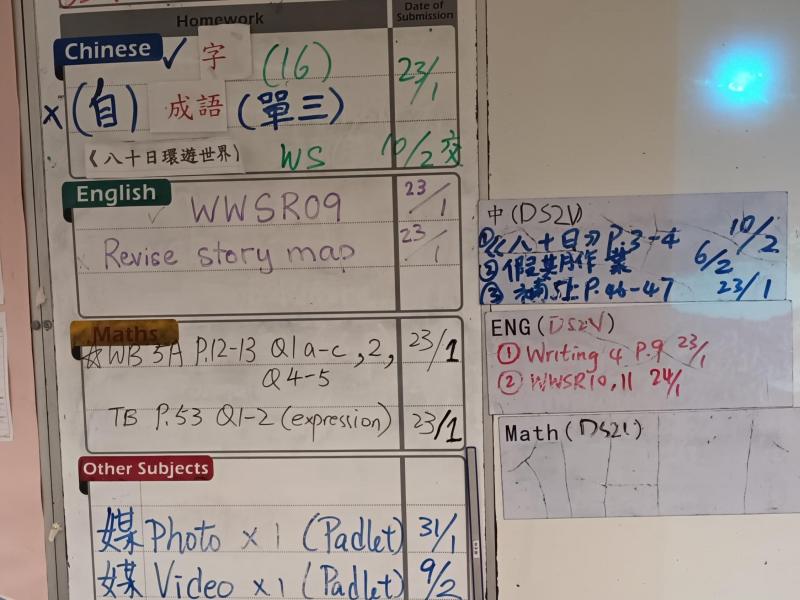 Homework
Date of Submission
Chinese ✓ 字 (16) 23/1
x (自) 成語 (單三)
《八十日環遊世界》 WS 10/2 交
English
WWSR09 23/1
Revise story map 23/1
Maths
☆ WB 3A P.12-13 Q1a-c, 2, 23/1
Q4-5
TB P.53 Q1-2 (expression) 23/1
Other Subjects
媒 Photo x 1 (Padlet) 31/1
媒 Video x 1 (Padlet) 9/2
中 (DS2V)
① 《八十日》 P.3-4 10/2
② 假期作業 6/2
③ 補上 P.46-47 23/1
ENG (DS2V)
① Writing 4 P.9 23/1
② WWSR10, 11 24/1
Math (DS2L)